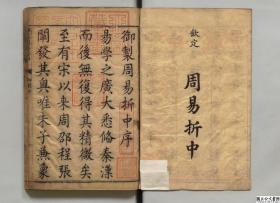 欽定
周易折中
御製周易折中序
易學之廣大悉備秦漢
而後無復得其精微矣
至有宋以來周邵程張
闡發其奧唯朱子兼象